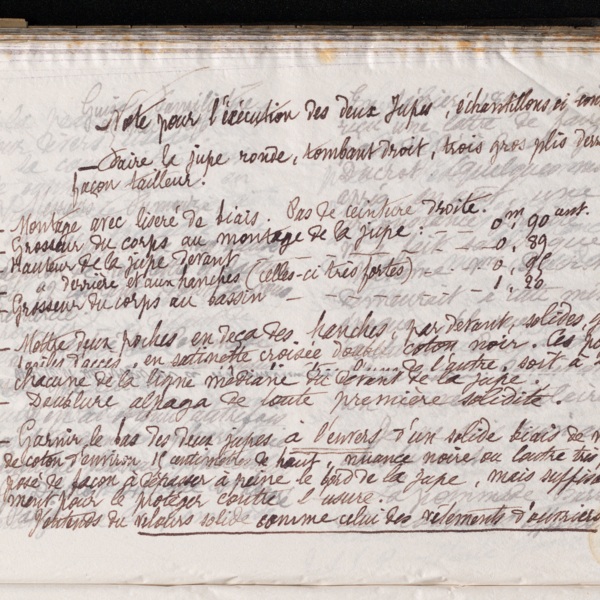 Note pour l'exécution des deux Jupes, échantillons ci
— Faire la jupe ronde, tombant droit, trois gros plis
façon tailleur.
— Montage avec liseré de biais. Pas de ceinture droite.
— Grosseur du corps au montage de la jupe : — 0,m 90 cent.
— Hauteur de la jupe devant — — 0, 89
— derrière et aux hanches (celles-ci très fortes) — — 0, 95
— Grosseur du corps au bassin — — 1, 20
— Mettre deux poches en deça des hanches, par devant, solides,
d'accès, en satinette croisée double coton noir. Ces
chacune de la ligne médiane du devant de la jupe.
— Doublure alpaga de toute première solidité.
— Garnir le bas des deux jupes à l'envers d'un solide biais de
de coton d'environ 15 centimètres de haut, nuance noire ou loutre très
posé de façon à dépasser à peine le bord de la jupe, mais
ment pour le protéger contre l'usure.
J'entends du velours solide comme celui des vêtements d'ouvriers